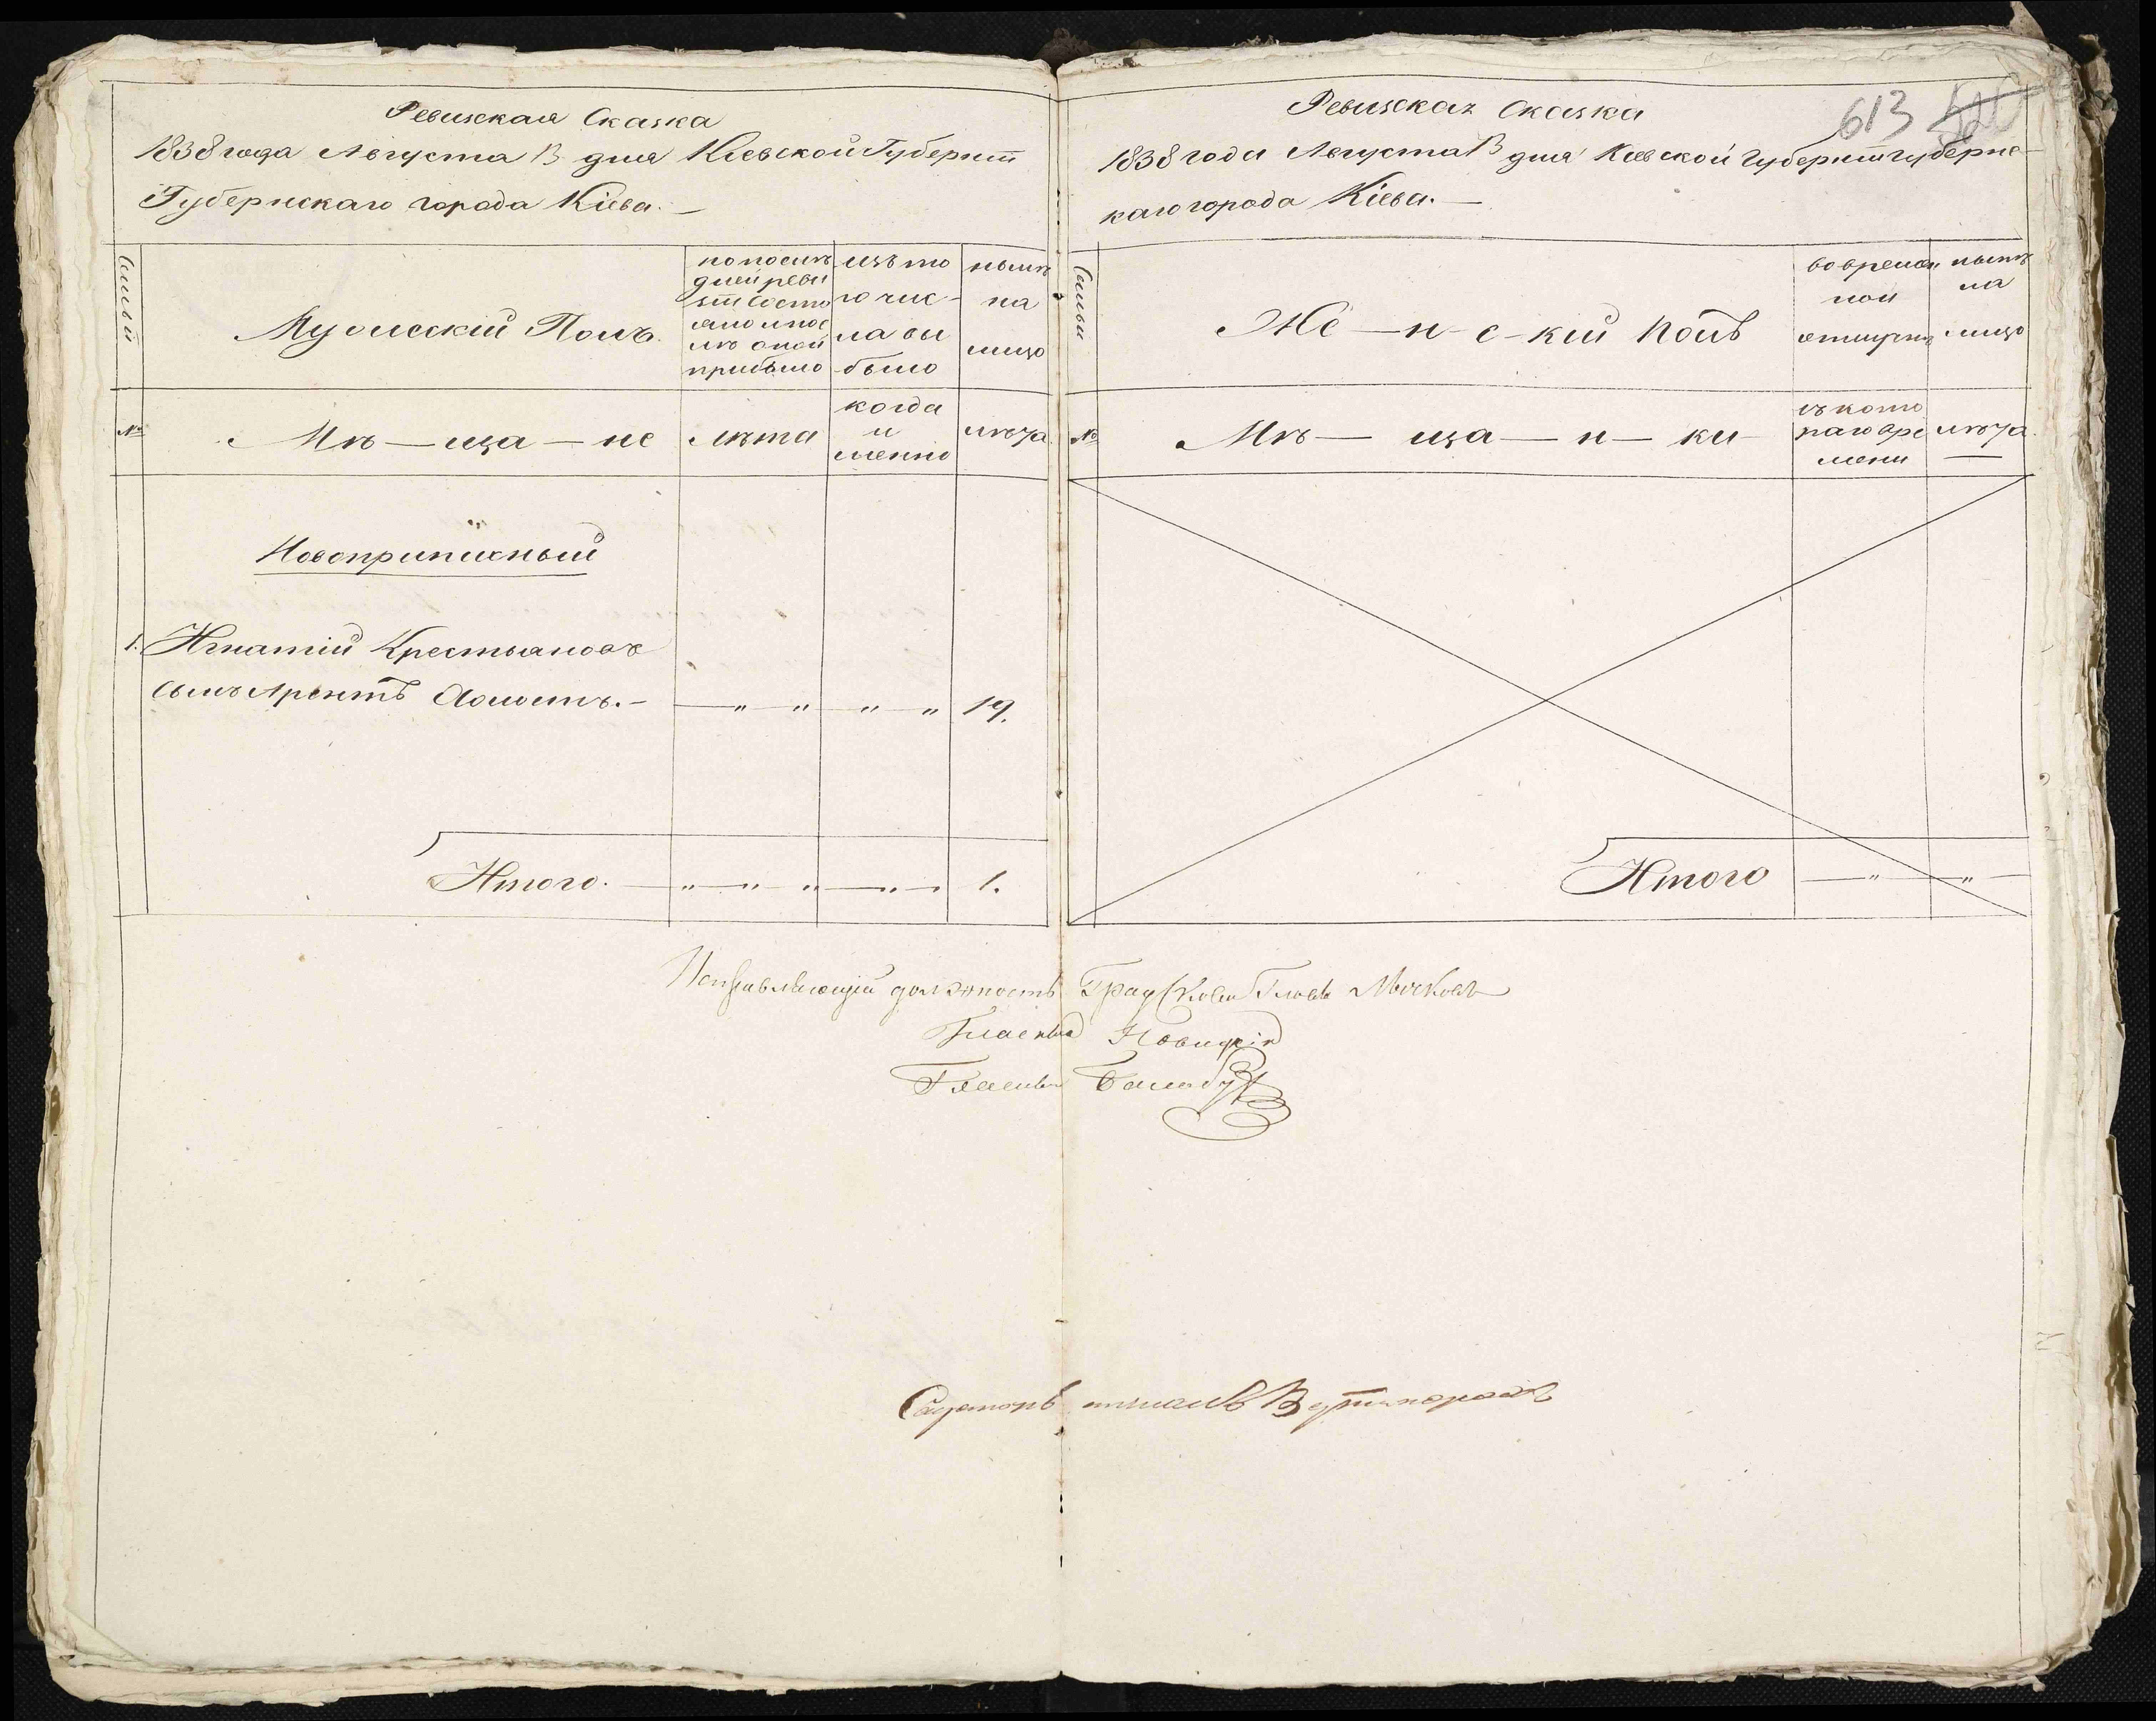 Ревизская Сказка
1838 года Августа 13 дня Кіевской Губерніи
Губернскаго города Кіева.
Семьи
Мужескій Полъ.
по послѣ
дней реви
зіи состо
яло и пос
лѣ оной
прибыло
изъ то
го чис-
ла вы
было
нынѣ
на
лицо
№
Мѣ—ща—не
лѣта
когда
и
менно
лѣта
Новоприписный
1. Игнатій Крестьяновъ
сынъ Арентъ
— " " " " 19.
Итого. — " — " " — " — 1.
Ревизская Сказка
613
1838 года Августа 13 дня Кіевской Губерніи губернс-
каго города Кіева.—
Семьи
Же—н-с-кій полъ
во времен
ной
отлучкѣ
нынѣ
на
лицо
№
Мѣ— ща— н— ки
съ кото
раго вре
мени
лѣта
Итого — " — " —
Исправляющій должность Градской Главы
Гласный Новицкій
Гласный Балабуха